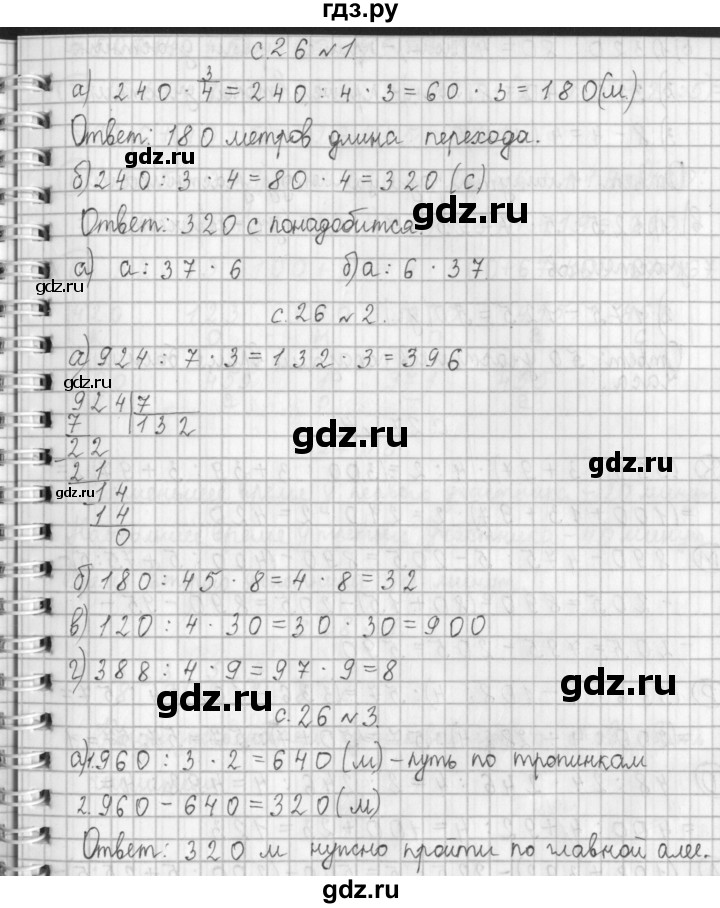 гдз.ру
с 26 № 1
а) 240 · 3/4 = 240 : 4 · 3 = 60 · 3 = 180 (м)
Ответ: 180 метров длина перехода.
gdz.ru
б) 240 : 3 · 4 = 80 · 4 = 320 (с)
gdz.ru
Ответ: 320 с понадобится.
а) а : 37 · 6 б) а : 6 · 37
gdz.ru
с. 26 № 2.
а) 924 : 7 · 3 = 132 · 3 = 396
gdz.ru
924 7
7 132
gdz.ru
22
gdz.ru
21
gdz.ru
14
14
0
б) 180 : 45 · 8 = 4 · 8 = 32
в) 120 : 4 · 30 = 30 · 30 = 900
г) 388 : 4 · 9 = 97 · 9 = 8
gdz.ru
gdz.ru
с. 26 № 3
а) 1. 960 : 3 · 2 = 640 (м) - путь по тропинкам
2. 960 - 640 = 320 (м)
Ответ: 320 м нужно пройти по главной алее.
gdz.ru